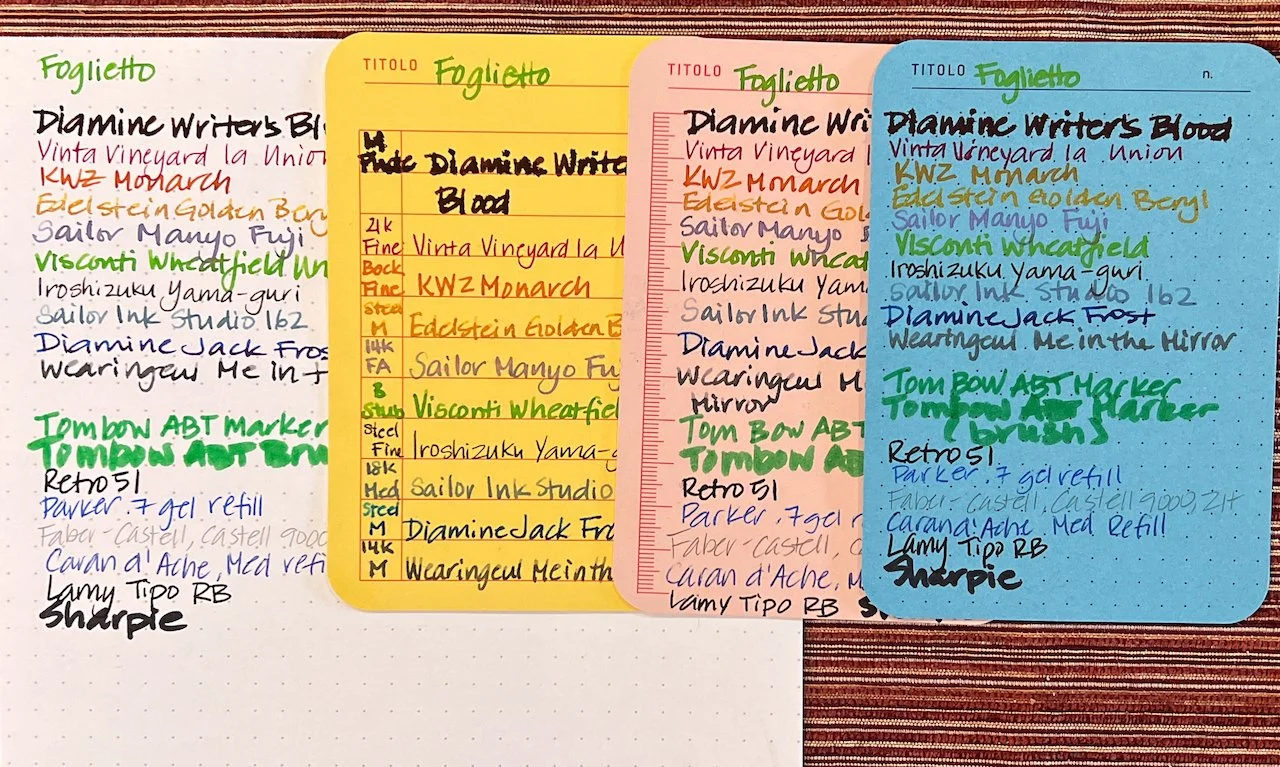 Foglietto
Diamine Writer's Bl
Vinta Vineyard la Union
KWZ Monarch
Edelstein Golden Bery
Sailor Manyo Fuji
Visconti Wheatfield Un
Iroshizuku Yama-guri
Sailor Ink Studio 162
Diamine Jack Fros
Wearingeul Me in t
Tombow ABT Marker
Tombow ABT Bru
Retro 51
Parker .7 gel refill
Faber-Castel, Castell 9000
Caran d'Ache, Med refi
Lamy Tipo RB
Sharpie
TITOLO Foglietto
M
Diamine Write
Blood
21k
Fine Vinta Vineyard la U
Bock
Fine KWZ Monarch
Steel
M Edelstein Golden B
14k
FA Sailor Manyo Fuj
B
Stub Visconti Wheatfiel
Steel
Fine Iroshizuku Yama-g
18k
Med Sailor Ink Studio
Steel
M Diamine Jack Fro
14k
M Wearingeul Me in th
TITOLO Foglietto
Diamine Wri
Vinta Vineyard l
KWZ Monarch
Edelstein Gol
Sailor Manyo
Visconti Wheat
Iroshizuku Yam
Sailor Ink Stu
Diamine Jack
Wearingeul M
Mirror
Tom Bow ABT
Tombow AB
Retro 51
Parker .7gel r
Faber-Castell, C
Caran d'Ache, M
Lamy Tipo RB S
TITOLO Foglietto n.
Diamine Writer's Blood
Vinta Vineyard la Union
KWZ Monarch
Edelstein Golden Beryl
Sailor Manyo Fuji
Visconti Wheatfield
Iroshizuku Yama-guri
Sailor Ink Studio 162
Diamine Jack Frost
Wearingeul Me in the Mirror
Tom Bow ABT Marker
Tombow ABT Marker
(brush)
Retro 51
Parker .7 gel refill
Faber-Castell, Castell 9000 2H
Caran d'Ache, Med Refill
Lamy Tipo RB
Sharpie